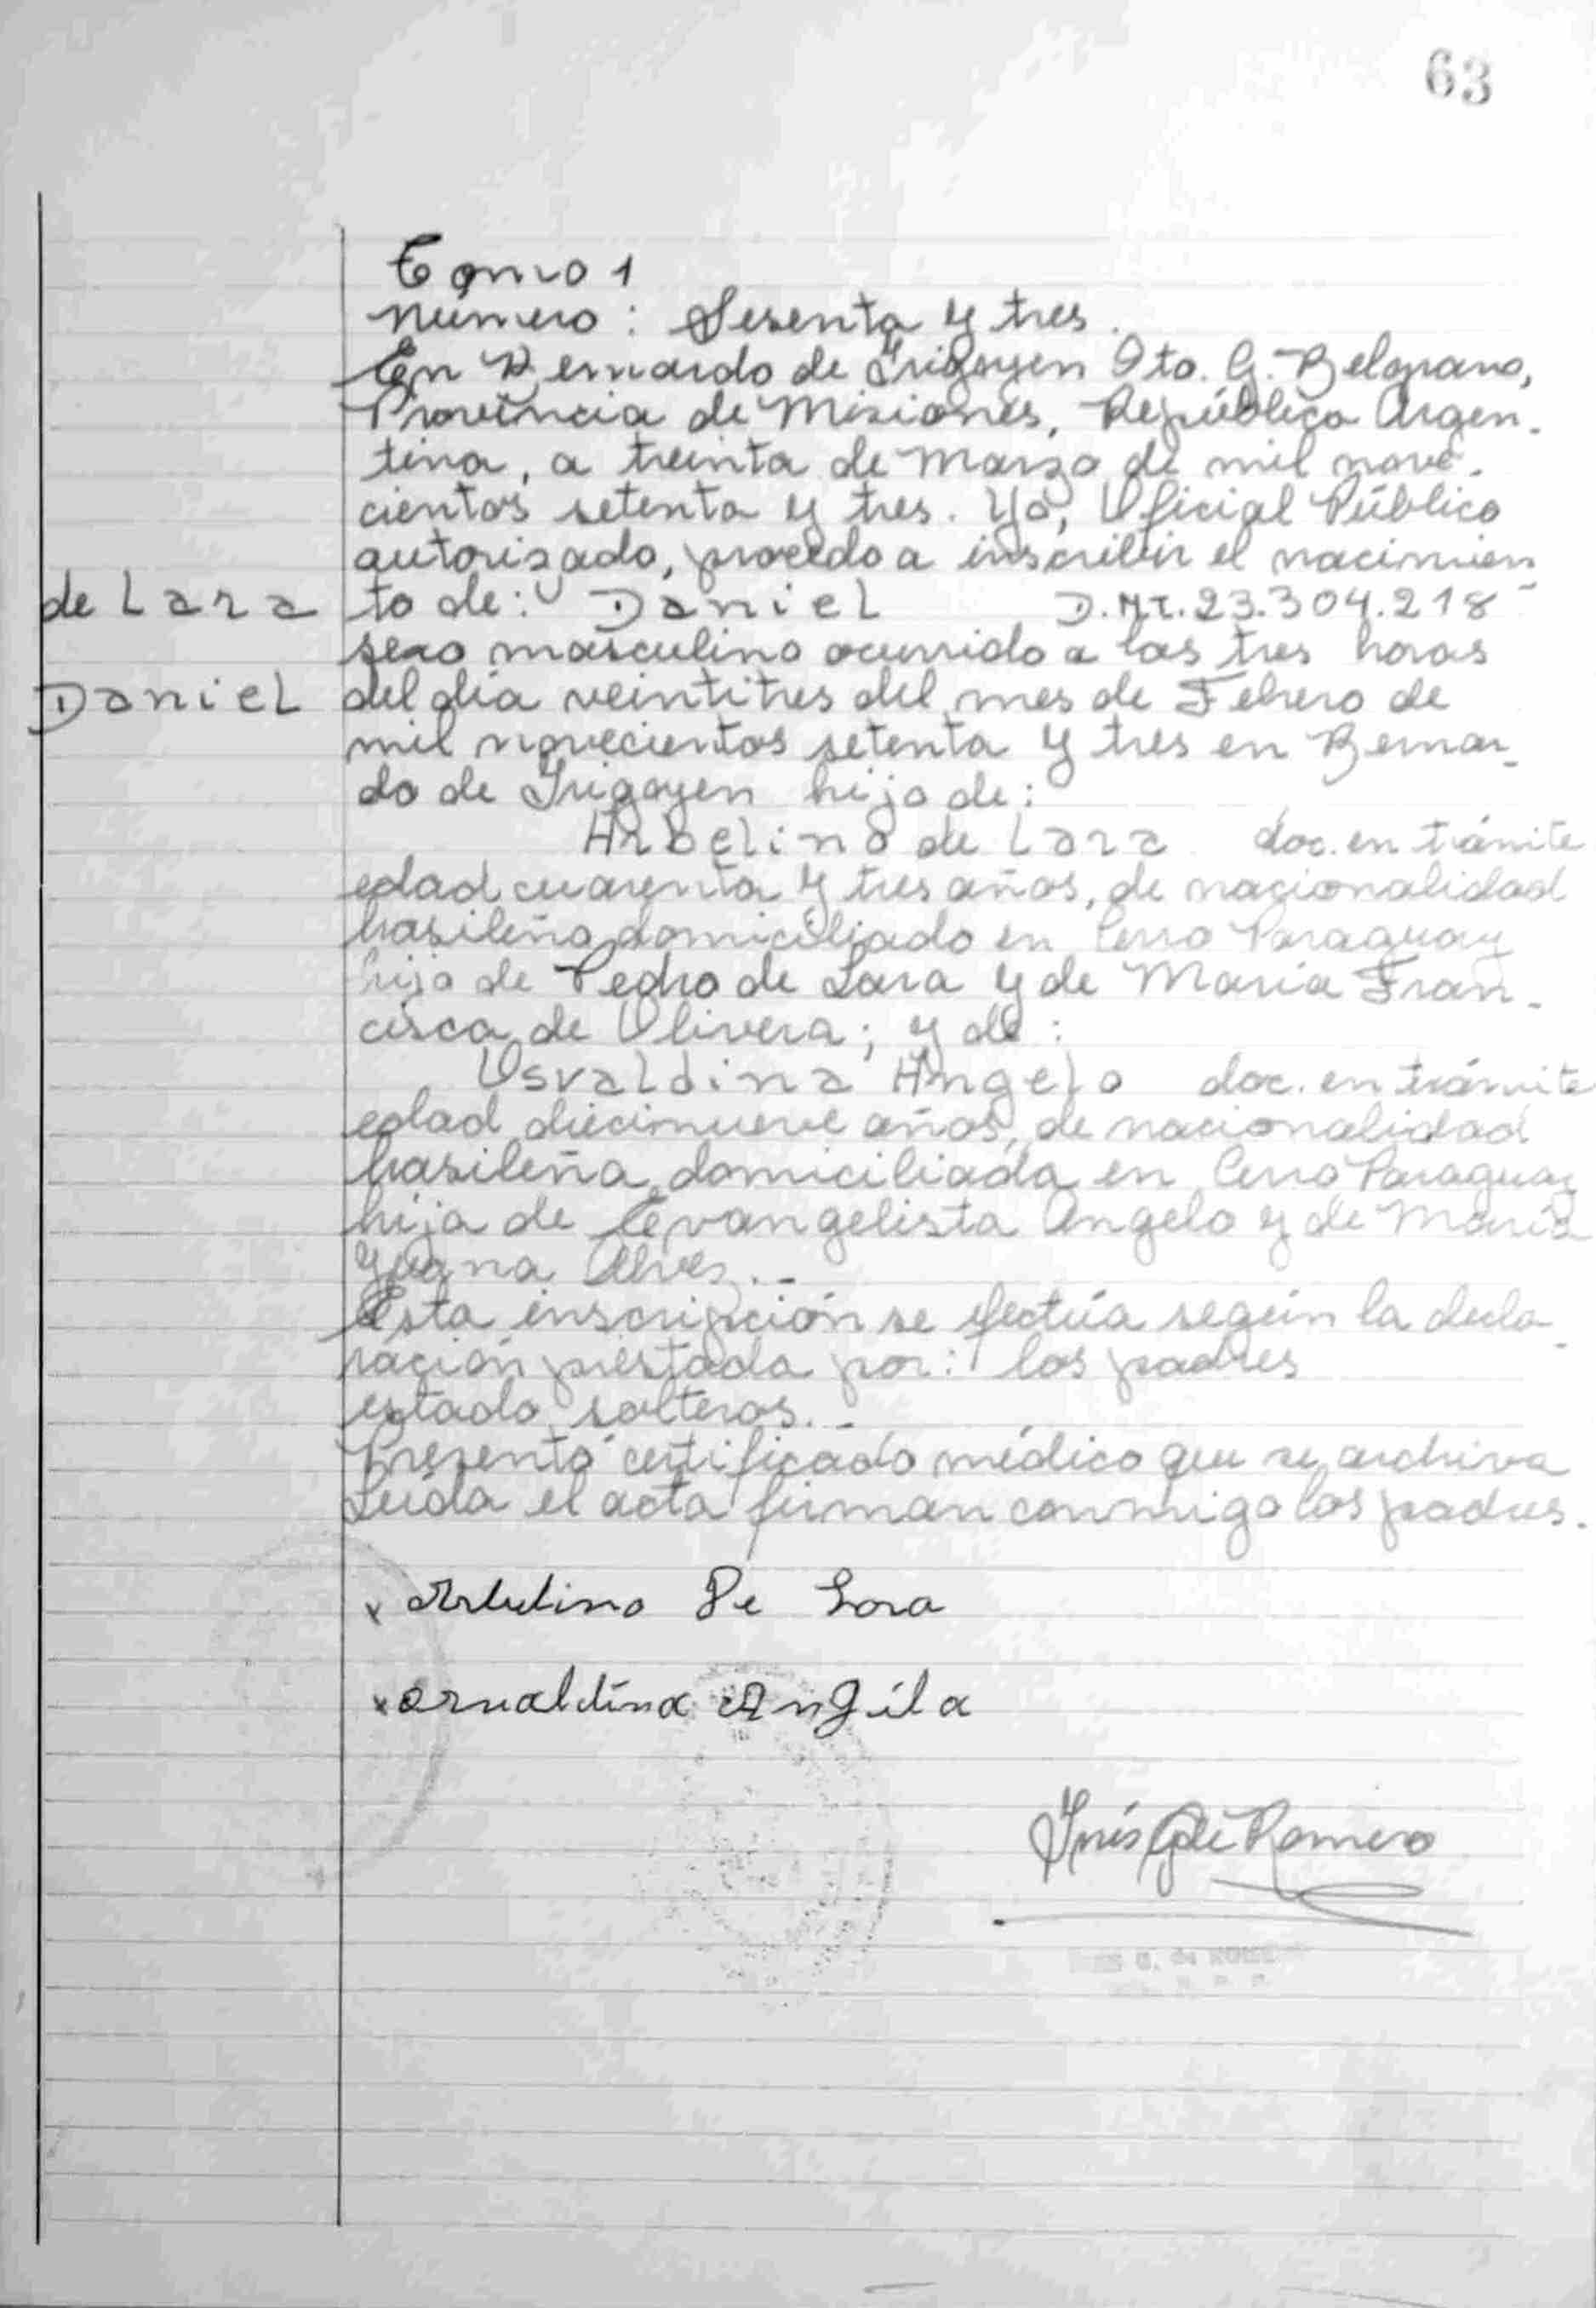 63
Tomo 1
Número: Sesenta y tres.
En Bernardo de Irigoyen Dto. G. Belgrano,
Provincia de Misiones, República Argen-
tina, a treinta de Marzo de mil nove-
cientos setenta y tres. Yo, Oficial Público
autorizado, procedo a inscribir el nacimien
de Lara
to de: Daniel D.M.I. 23.304.218
sexo masculino ocurrido a las tres horas
Daniel
del día veintitres del mes de Febrero de
mil novecientos setenta y tres en Bernar-
do de Irigoyen hijo de:
Arbelino de Lara doc. en trámite
edad cuarenta y tres años, de nacionalidad
brasileño, domiciliado en Cerro Paraguay
hijo de Pedro de Lara y de María Fran-
cisca de Olivera; y de:
Osvaldina Angelo doc. en trámite
edad diecinueve años, de nacionalidad
brasileña, domiciliada en Cerro Paraguay
hija de Evangelista Angelo y de María
Juana Alves.-
Esta inscripción se efectúa según la decla-
ración prestada por: los padres
estado solteros.-
Presentó certificado médico que se archiva
Leída el acta firman conmigo los padres.
x Arbelino De Lara
x Osvaldina Angila
Inés G de Romero